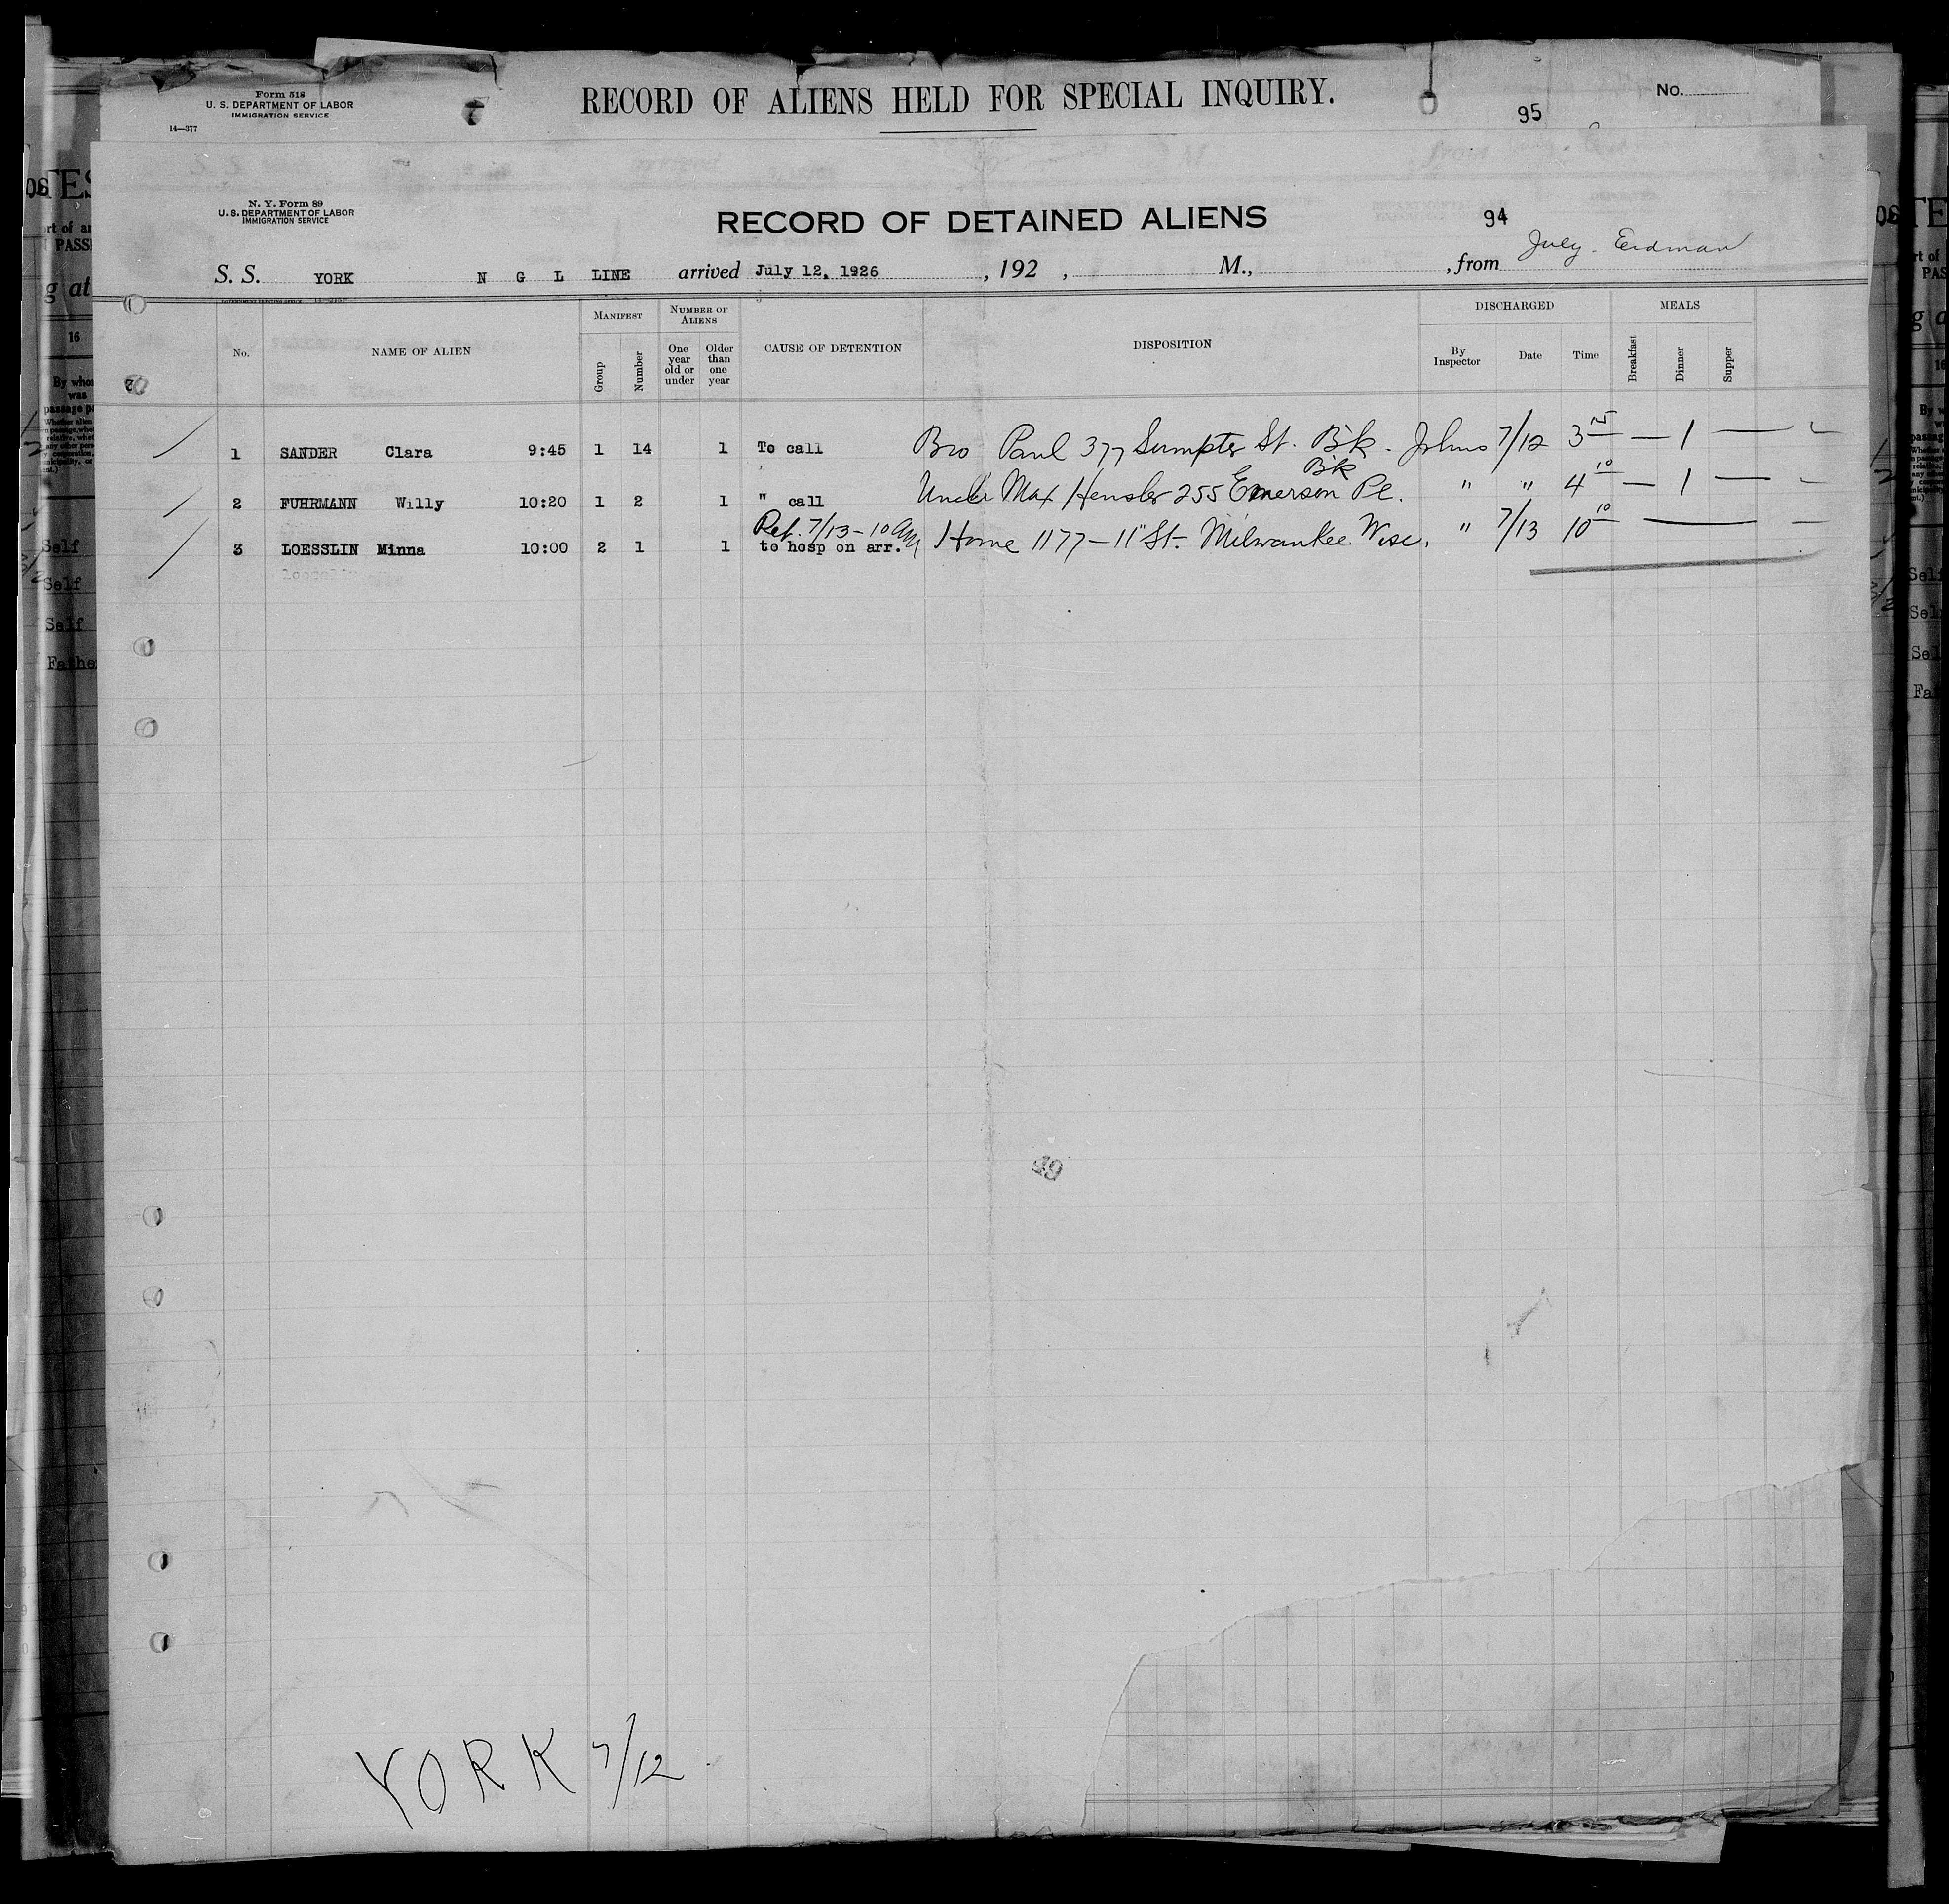 Form 518
U. S. DEPARTMENT OF LABOR
IMMIGRATION SERVICE
14—377
RECORD OF ALIENS HELD FOR SPECIAL INQUIRY.
No.
95
N. Y. Form 89
U. S. DEPARTMENT OF LABOR
IMMIGRATION SERVICE
RECORD OF DETAINED ALIENS
94
S. S. YORK N G L LINE arrived July 12, 1926, 192 , M., , from July - Erdman
No. NAME OF ALIEN MANIFEST Group Number NUMBER OF ALIENS One year old or under Older than one year CAUSE OF DETENTION DISPOSITION DISCHARGED By Inspector Date Time MEALS Breakfast Dinner Supper
1 SANDER Clara 9:45 1 14 1 To call Bro Paul 377 Sumpter St. B'k. Johns 7/12 3 — 1 —
2 FUHRMANN Willy 10:20 1 2 1 " call Uncle Max Hensler 255 Emerson Pl. B'k " " 4 10 — 1 —
3 LOESSLIN Minna 10:00 2 1 1 Ret. 7/13 - 10 AM to hosp on arr. Home 1177 - 11" St. Milwaukee. Wisc. " 7/13 10 10 —
YORK 7/12
16
By whom was passage p
Self
Self
Self
Father